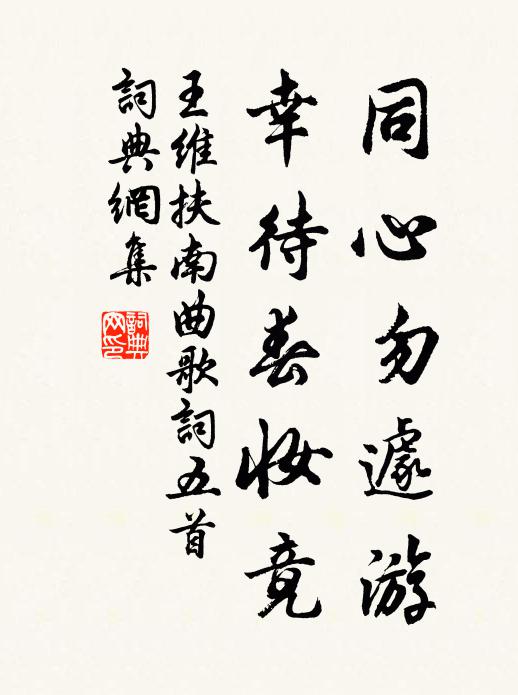 同心勿遽游
幸待春妝竟
王維扶南曲歌詞五首
詞典網集
詞典
网印